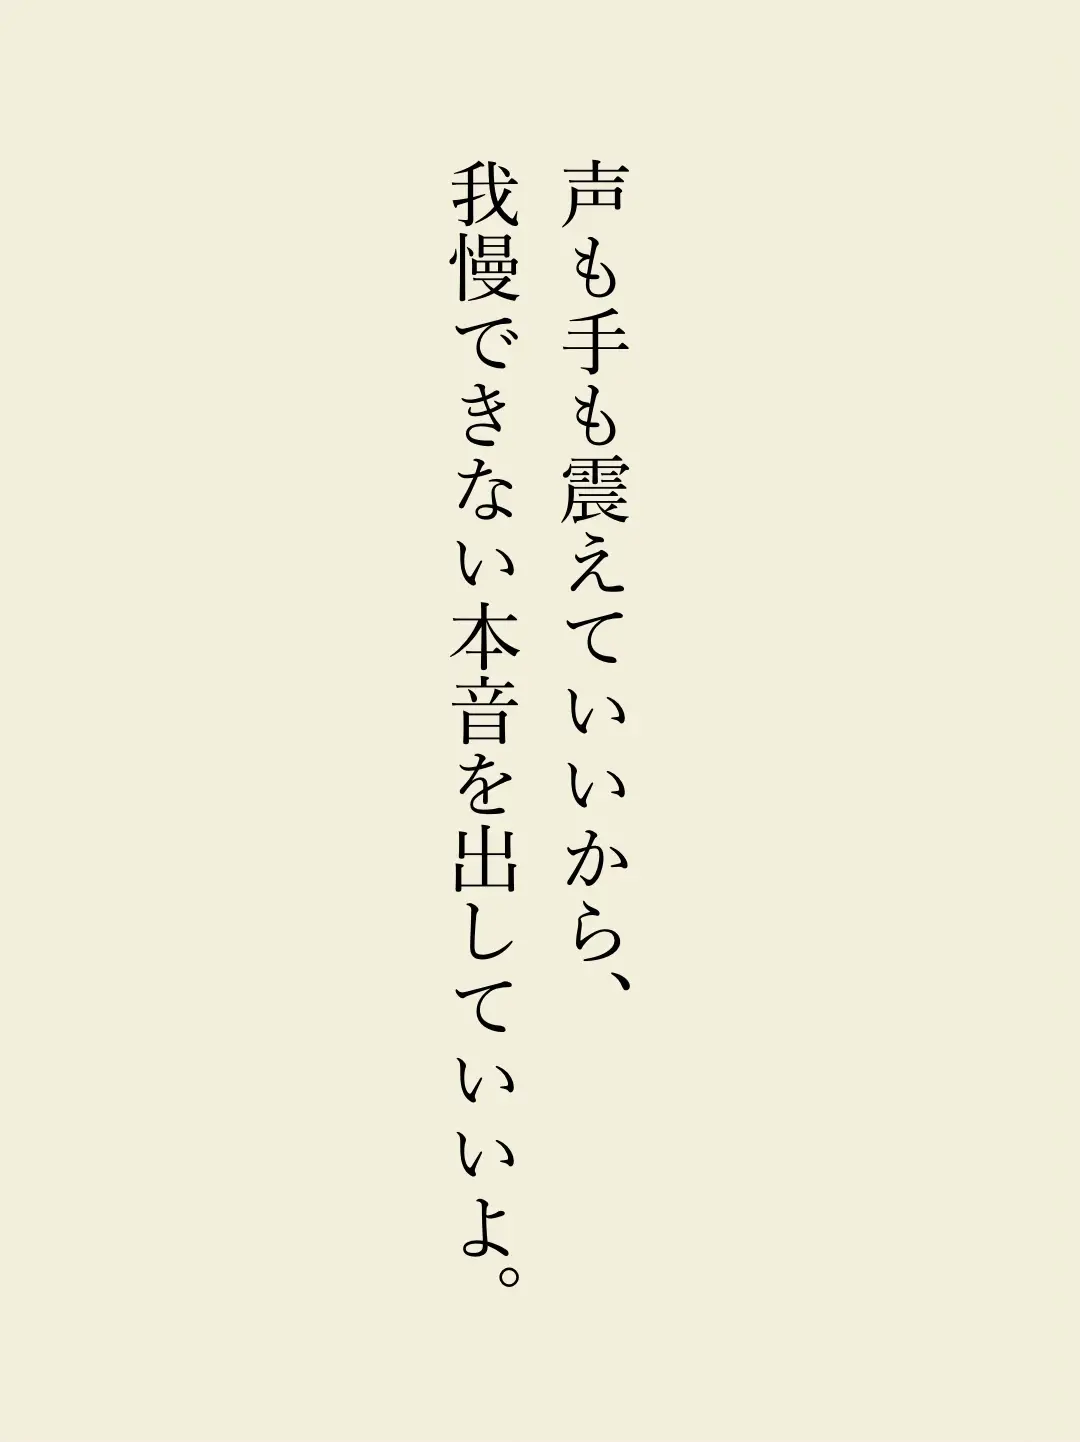 声も手も震えていいから、
我慢できない本音を出していいよ。